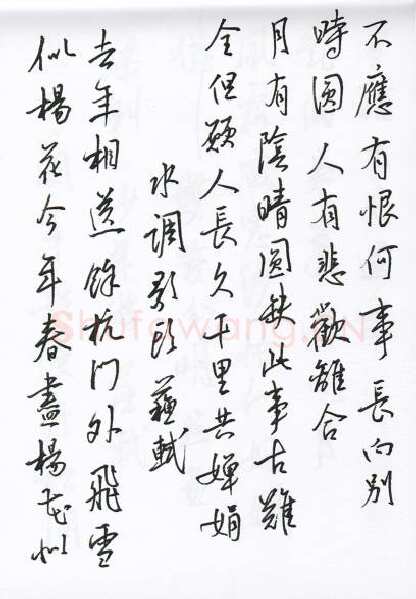 不應有恨何事長向別
時圓人有悲歡離合
月有陰晴圓缺此事古難
全但願人長久千里共嬋娟
水調歌頭 蘇軾
去年相送餘杭門外飛雪
似楊花今年春盡楊花似
Shufawang.CN